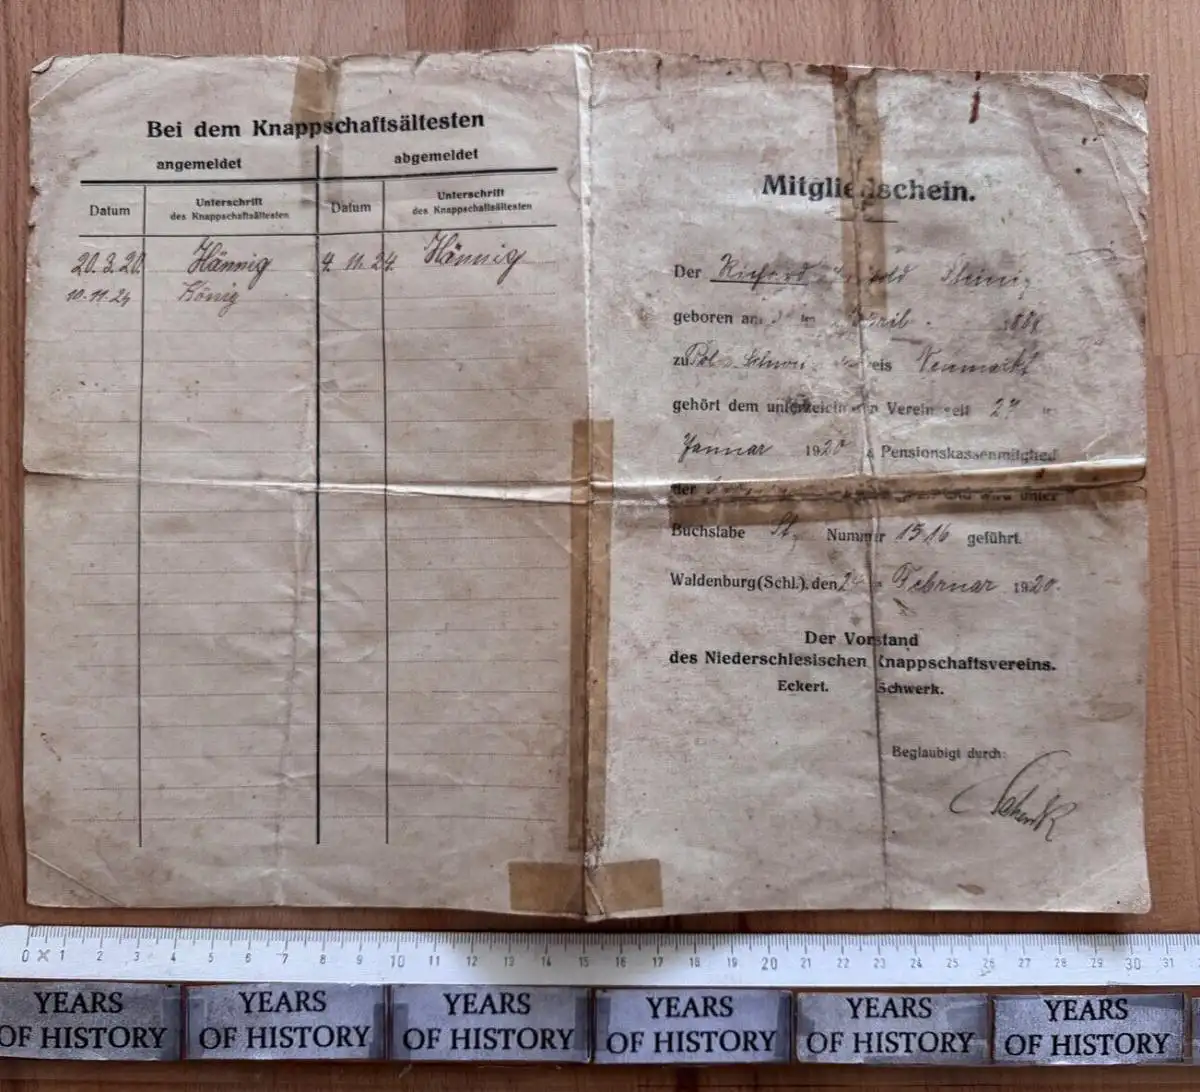 Bei dem Knappschaftsältesten
angemeldet
abgemeldet
Datum
Unterschrift
des Knappschaftsältesten
Datum
Unterschrift
des Knappschaftsältesten
20.3.20. Hännig 4.11.24. Hännig
10.11.24 König
Mitgliedschein.
Der Richard
geboren am April
zu Kreis Neumarkt
gehört dem unterzeichneten Verein seit 27
Januar 1920 Pensionskassenmitglied
der und wird unter
Buchstabe St. Nummer 1516 geführt.
Waldenburg (Schl.), den 24 Februar 1920.
Der Vorstand
des Niederschlesischen Knappschaftsvereins.
Eckert. Schwerk.
Beglaubigt durch:
0 1 2 3 4 5 6 7 8 9 10 11 12 13 14 15 16 17 18 19 20 21 22 23 24 25 26 27 28 29 30 31
YEARS OF HISTORY YEARS OF HISTORY YEARS OF HISTORY YEARS OF HISTORY YEARS OF HISTORY YEARS OF HISTORY